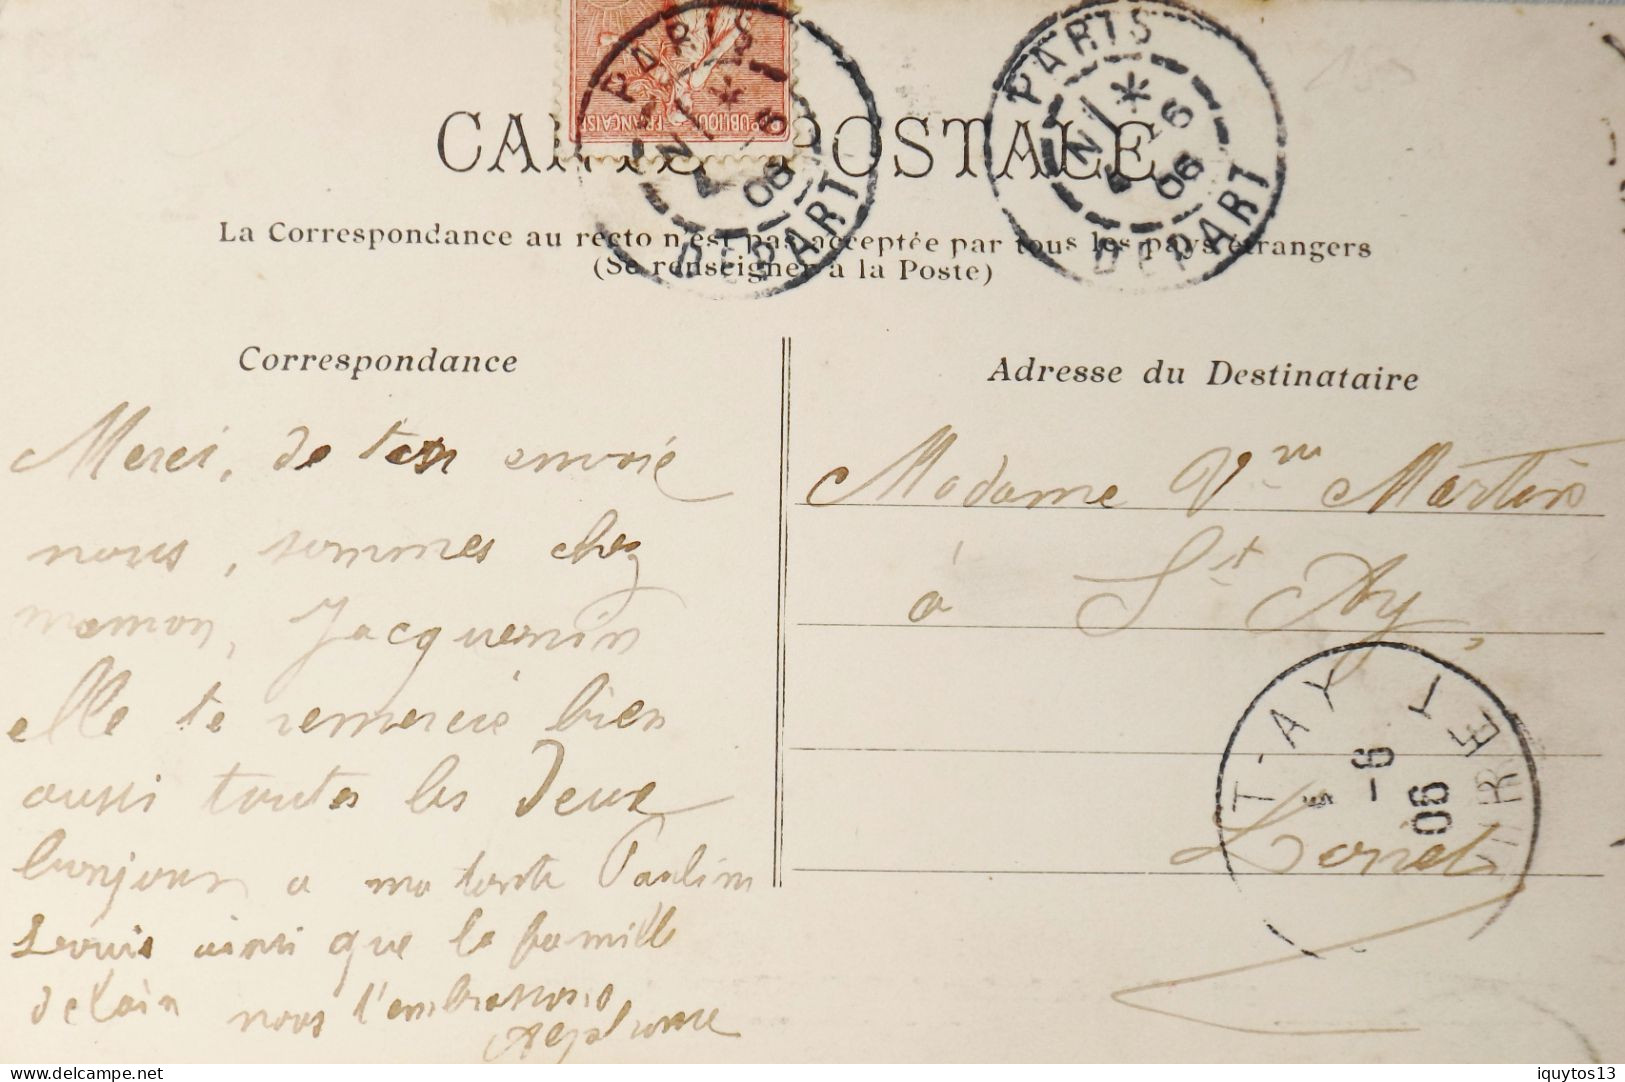 CARTE POSTALE
RÉPUBLIQUE FRANÇAISE
PARIS
6
06
DÉPART
PARIS
6
06
DEPART
La Correspondance au recto n'est pas acceptée par tous les pays étrangers
(Se renseigner à la Poste)
Correspondance
Adresse du Destinataire
Merci, de ton envoie
nous, sommes chez
maman, Jacquemin
elle te remercie bien
aussi toutes les deux
bonjour a ma tante Paulin
Louis ainsi que la famille
delain nous t'embrassons
Madame Vve Martin
à St Ay,
Loiret
ST-AY LOIRET
-6
06
delcampe.net
iquytos13